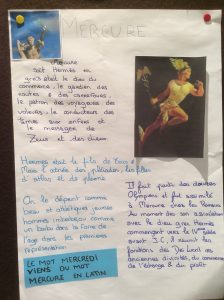 MERCURE
Mercure
soit Hermès en
grec était le dieu du
commerce, le gardien des
routes & des carrefours,
le patron des voyageurs des
voleurs, le conducteurs des
âmes aux enfers et
le messager de
Zeus et des dieux.
Hermes était le fils de Zeus &
Maia l'ainée des pléiades, les filles
d'atlas et de pleioné
On le dépeint comme
beau et athlétiques jeune
hommes imberbe ou comme
un barbu dans la force de
l'âge dans les premières
représentation
LE MOT MERCREDI
VIENS DU MOT
MERCURE EN LATIN
Il fait partie des
Olympiens et fut assimilé
à Mercure chez les Romains
Au moment de son assimilation
avec le dieu grec Hermès
commençant vers le
avant J.C, Il réunit les
fonctions des Dei lucrii
anciennes divinités, du commerce
de l'échange & du profit